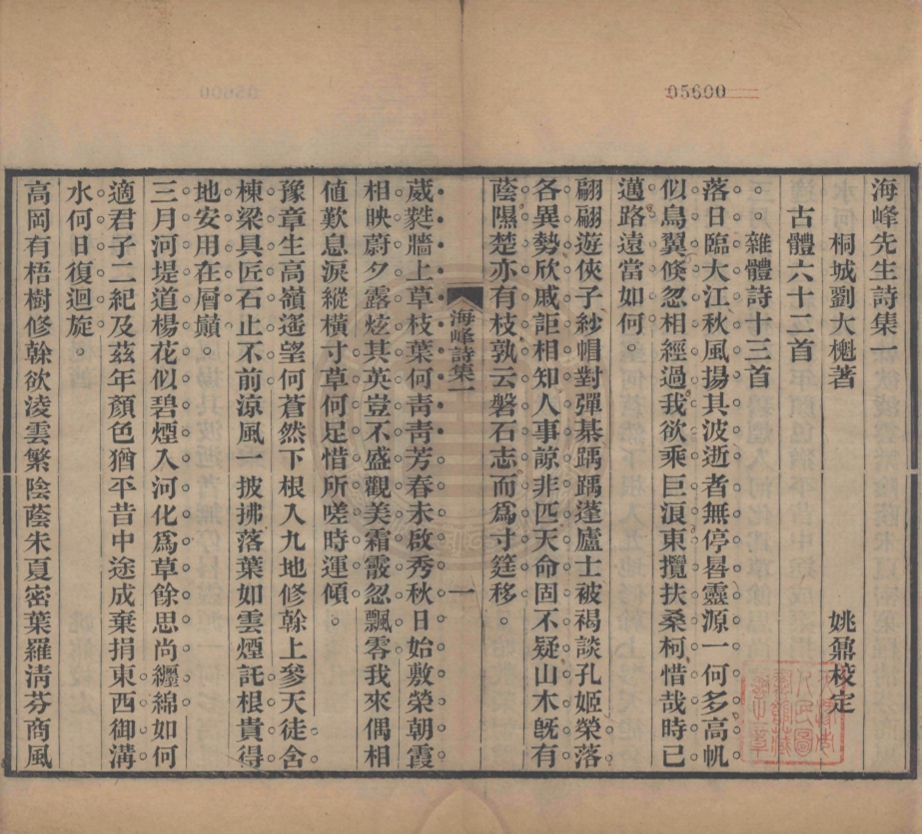 05600
海峰先生詩集一
桐城劉大櫆著
姚鼐校定
古體六十二首
雜體詩十三首
落日臨大江秋風揚其波逝者無停晷靈源一何多高帆
似鳥翼倐忽相經過我欲乘巨浪東攬扶桑柯惜哉時已
邁路遠當如何
翩翩遊俠子紗帽對彈棊踽踽蓬廬士被褐談孔姬榮落
各異勢欣戚詎相知人事諒非匹天命固不疑山木旣有
蔭隰楚亦有枝孰云磐石志而爲寸筳移
海峰詩集一
一
葳蕤牆上草枝葉何靑靑芳春未啟秀秋日始敷榮朝霞
相映蔚夕露炫其英豈不盛觀美霜霰忽飄零我來偶相
値歎息淚縱橫寸草何足惜所嗟時運傾
豫章生高嶺遙望何蒼然下根入九地修榦上參天徒含
棟梁具匠石止不前涼風一披拂落葉如雲煙託根貴得
地安用在層巔
三月河堤道楊花似碧煙入河化爲草餘思尚纒綿如何
適君子二紀及茲年顏色猶平昔中途成棄捐東西御溝
水何日復迴旋
高岡有梧樹修榦欲淩雲繁陰蔭朱夏密葉羅淸芬商風